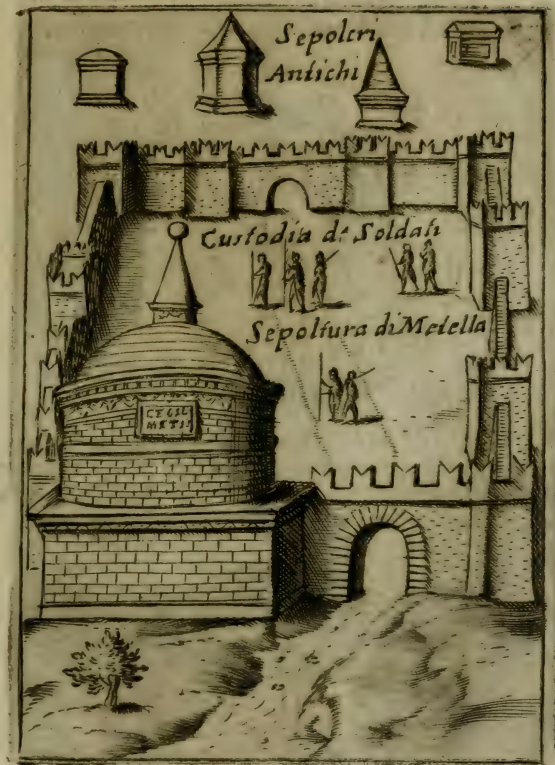 Sepolcri
Antichi
Custodia di Soldati
Sepoltura di Metella
CECIL
METII